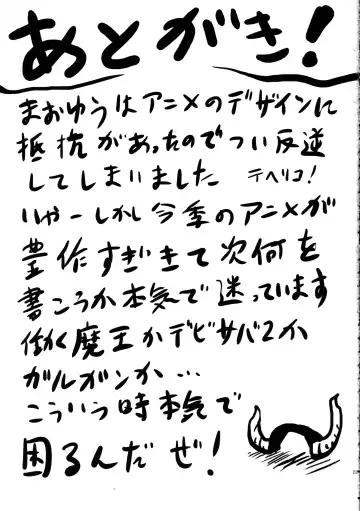 あとがき！
まおゆうはアニメのデザインに
抵抗があったのでつい反逆
してしまいました テヘペロ！
いやーしかし今季のアニメが
豊作すぎきて次何を
書こうか本気で迷っています
働く魔王かデビサバ2か
ガルガンか…
こういう時本気で
困るんだぜ！